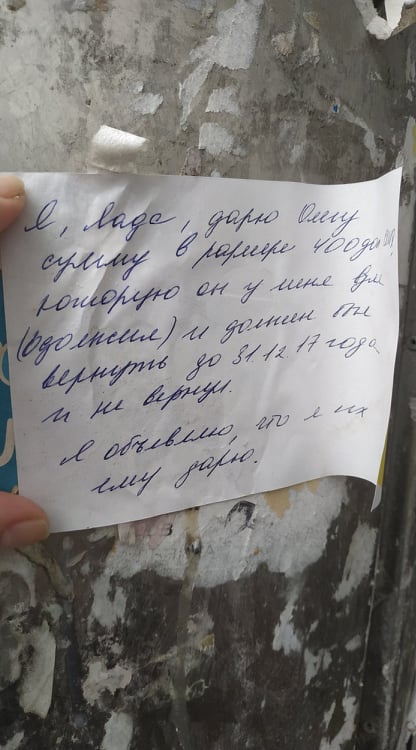 Я, Лада, дарю Олегу
сумму в размере 400 дол
которую он у меня взял
(одолжил) и должен был
вернуть до 31.12.17 года
и не вернул.
Я объявляю, что я их
ему дарю.